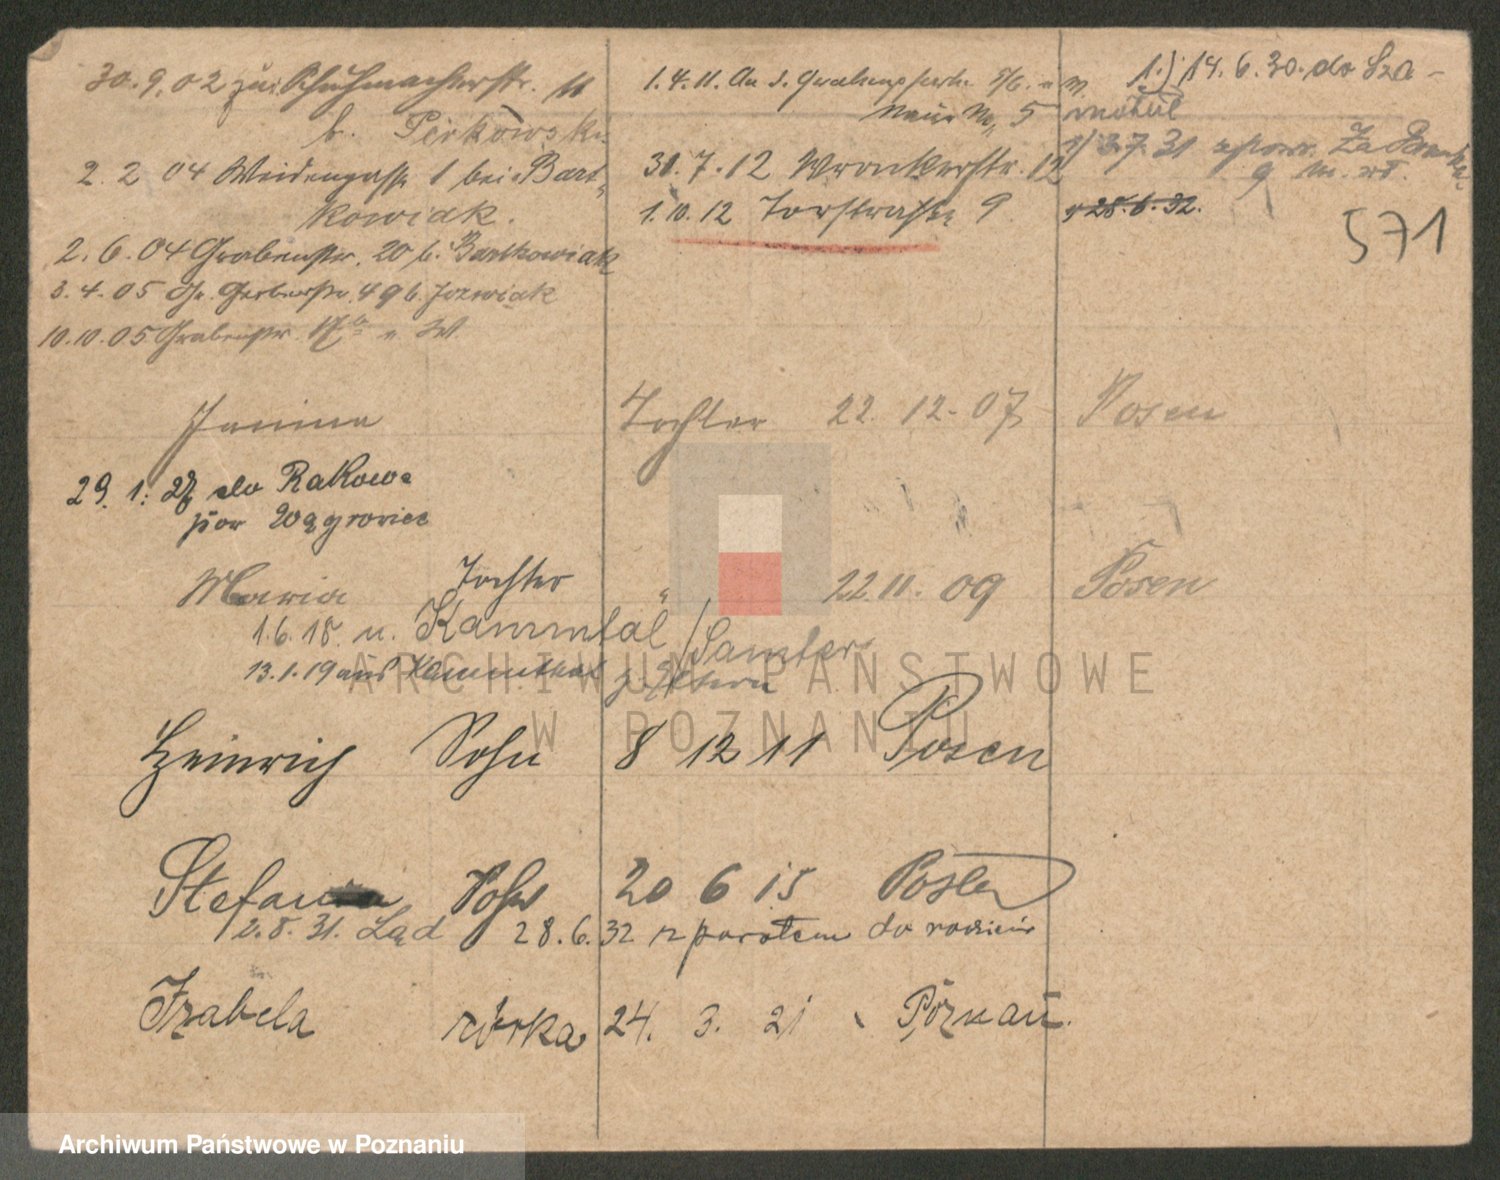 30.9.02 zur Schuhmacherstr. 11
b. Perkowski
2.2 04 Weidengasse 1 bei Bart-
kowiak.
2.6.04 Grabenstr. 20 b. Bartkowiak
3.4.05 Gr. Gerberstr. 49 b. Jozwiak
10.10.05 Grabenstr. W.
1.4.11. An d.
Neue No 5
31.7.12 Wronkerstr. 12
1.10.12 Torstrasse 9
1.) 14.6.30. do Sza-
motul
3.7.31 Za Bramką
9 m.
28.6.32.
571
Janina Tochter 22. 12. 07 Posen
29. 1. 27 do Rakowo
pow Wągrowiec
Maria Tochter " 22.11. 09 Posen
1.6.18. n. Kammtal / Samter
13.1.19 aus Kammthal z. Eltern
Heinrich Sohn 8 12 11 Posen
Stefan Sohn 20 6 15 Posen
2.8.31. Ląd 28.6.32 z powrotem do rodziców
Izabela córka 24. 3. 21 Poznań.
ARCHIWUM PAŃSTWOWE
W POZNANIU
Archiwum Państwowe w Poznaniu